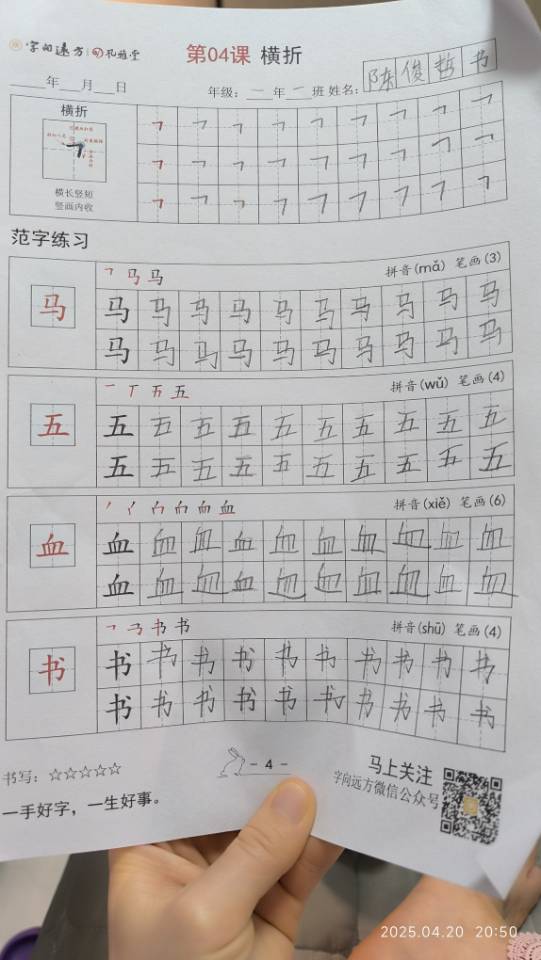 字向远方 孔雅堂 第04课 横折
____年___月___日 年级：一年二班 姓名：陈俊哲书
横折
横长竖短
竖画内收
范字练习
马 拼音(mǎ) 笔画(3)
马 马 马 马 马 马 马 马 马 马
马 马 马 马 马 马 马 马 马 马
五 拼音(wǔ) 笔画(4)
五 五 五 五 五 五 五 五 五 五
五 五 五 五 五 五 五 五 五 五
血 拼音(xiě) 笔画(6)
血 血 血 血 血 血 血 血 血 血
血 血 血 血 血 血 血 血 血 血
书 拼音(shū) 笔画(4)
书 书 书 书 书 书 书 书 书 书
书 书 书 书 书 书 书 书 书 书
书写：☆☆☆☆☆ - 4 - 马上关注
一手好字，一生好事。 字向远方微信公众号
2025.04.20 20:50